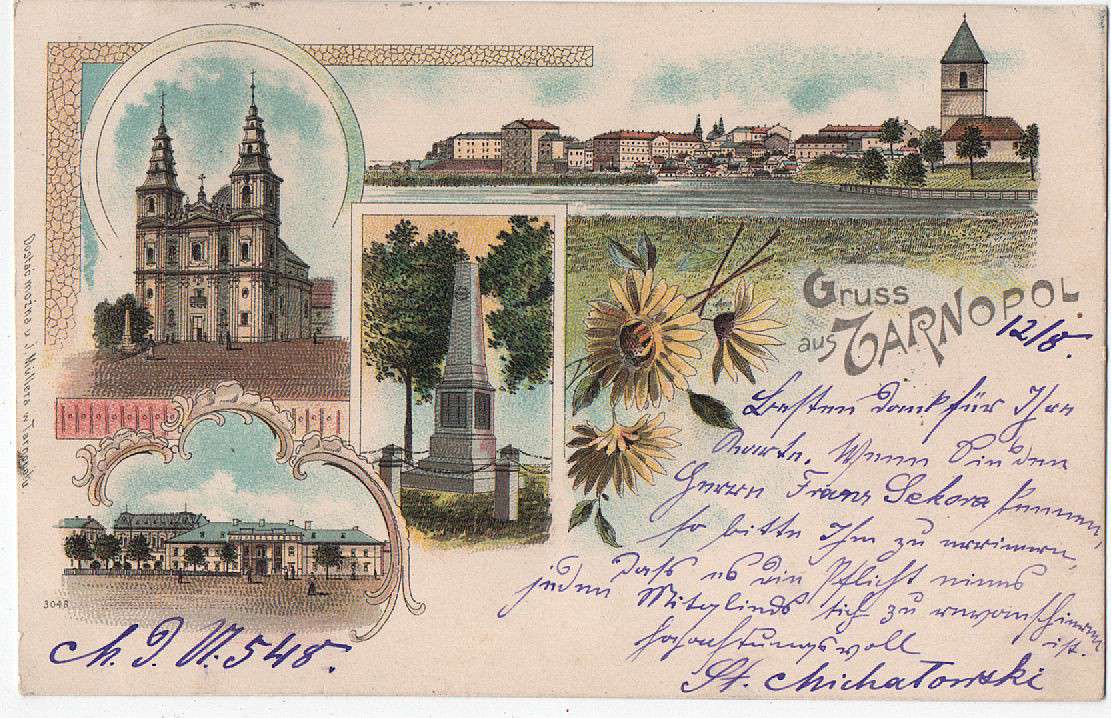 Gruss
aus TARNOPOL
12/8.
Besten Dank für Ihre
Karte. Wenn Sie den
Herrn Franz Sekora kennen,
so bitte Ihm zu erinnern,
dass es die Pflicht eines
jeden Mitglieds sich zu revanschieren
ist.
Hochachtungsvoll
St. Michałowski
3048
M. J. N. 548.
Dostać można u J. Müllera w Tarnopolu